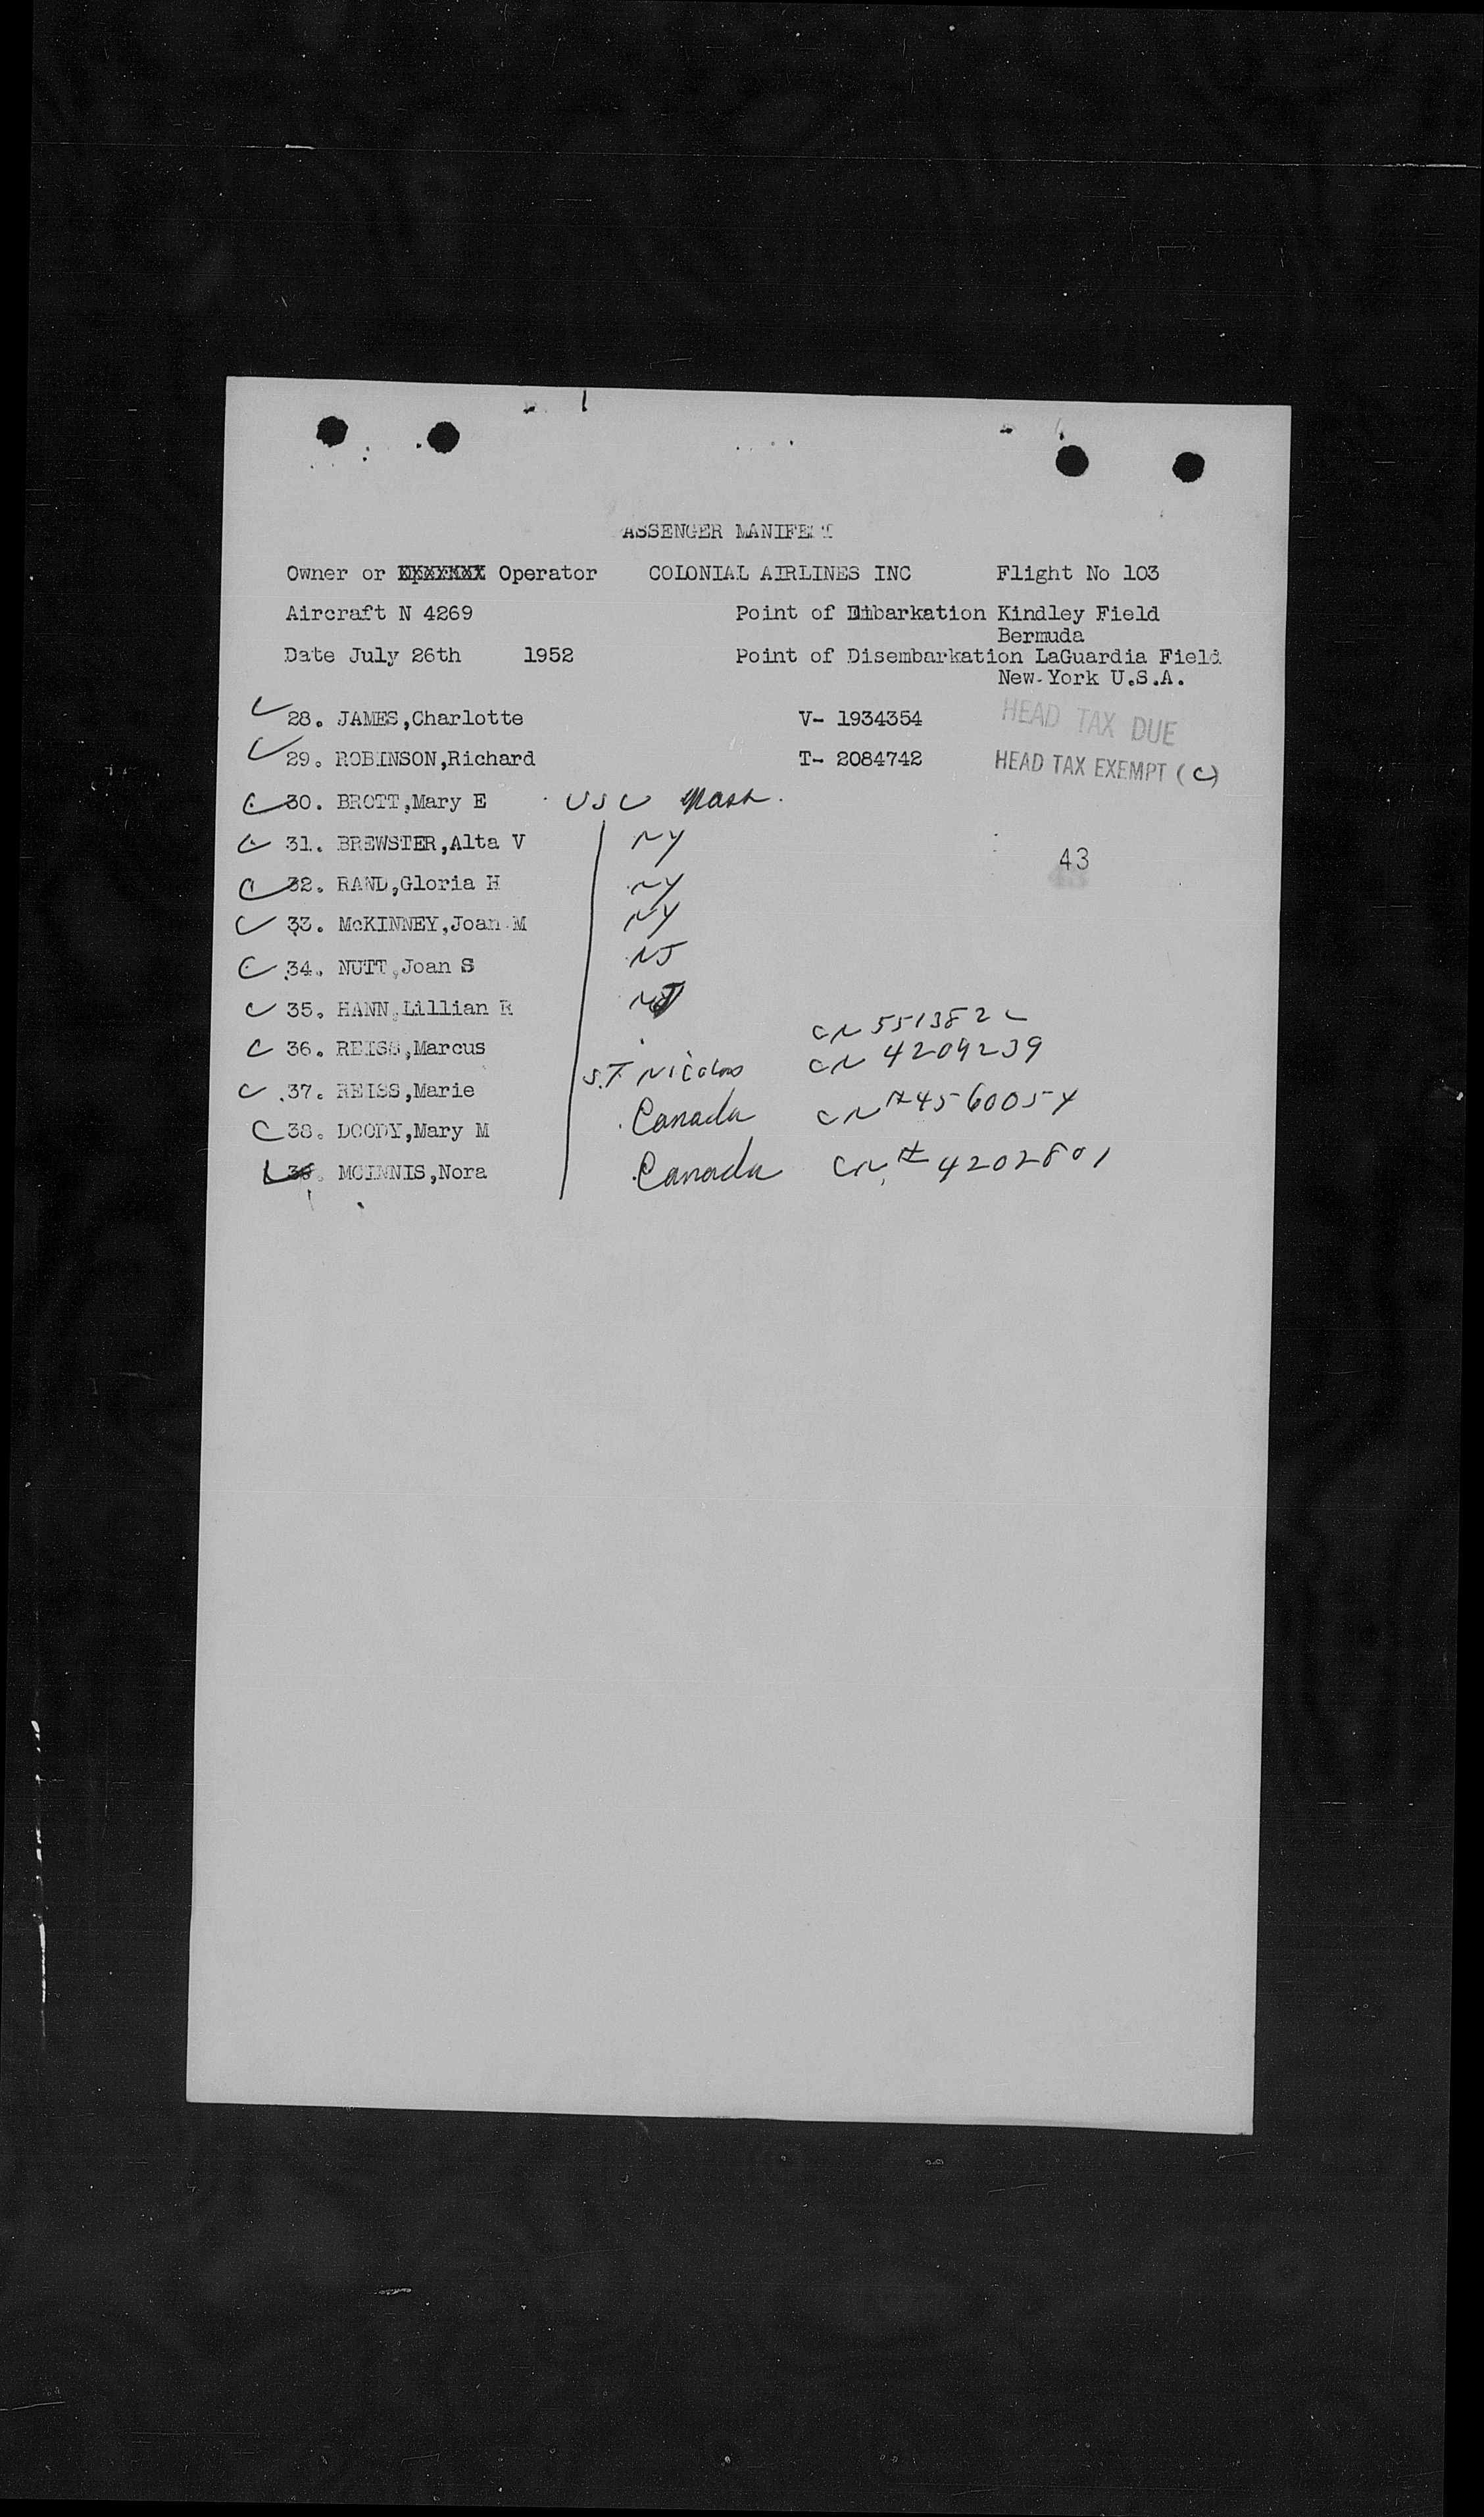 ASSENGER MANIFEST
Owner or XXXXXXX Operator COLONIAL AIRLINES INC Flight No 103
Aircraft N 4269 Point of Embarkation Kindley Field
Bermuda
Date July 26th 1952 Point of Disembarkation LaGuardia Field
New York U.S.A.
28. JAMES,Charlotte V- 1934354 HEAD TAX DUE
29. ROBINSON,Richard T- 2084742 HEAD TAX EXEMPT (C)
30. BROTT,Mary E USC Mass.
31. BREWSTER,Alta V NY
43
32. RAND,Gloria H NY
33. McKINNEY,Joan M NY
34. NUTT,Joan S NJ
35. HANN,Lillian R NJ
36. REISS,Marcus CN 5513822
37. REISS,Marie ST Nicolas CN 4209239
38. DOODY,Mary M Canada CN # 4560054
39. MCINNIS,Nora Canada CN # 4202801